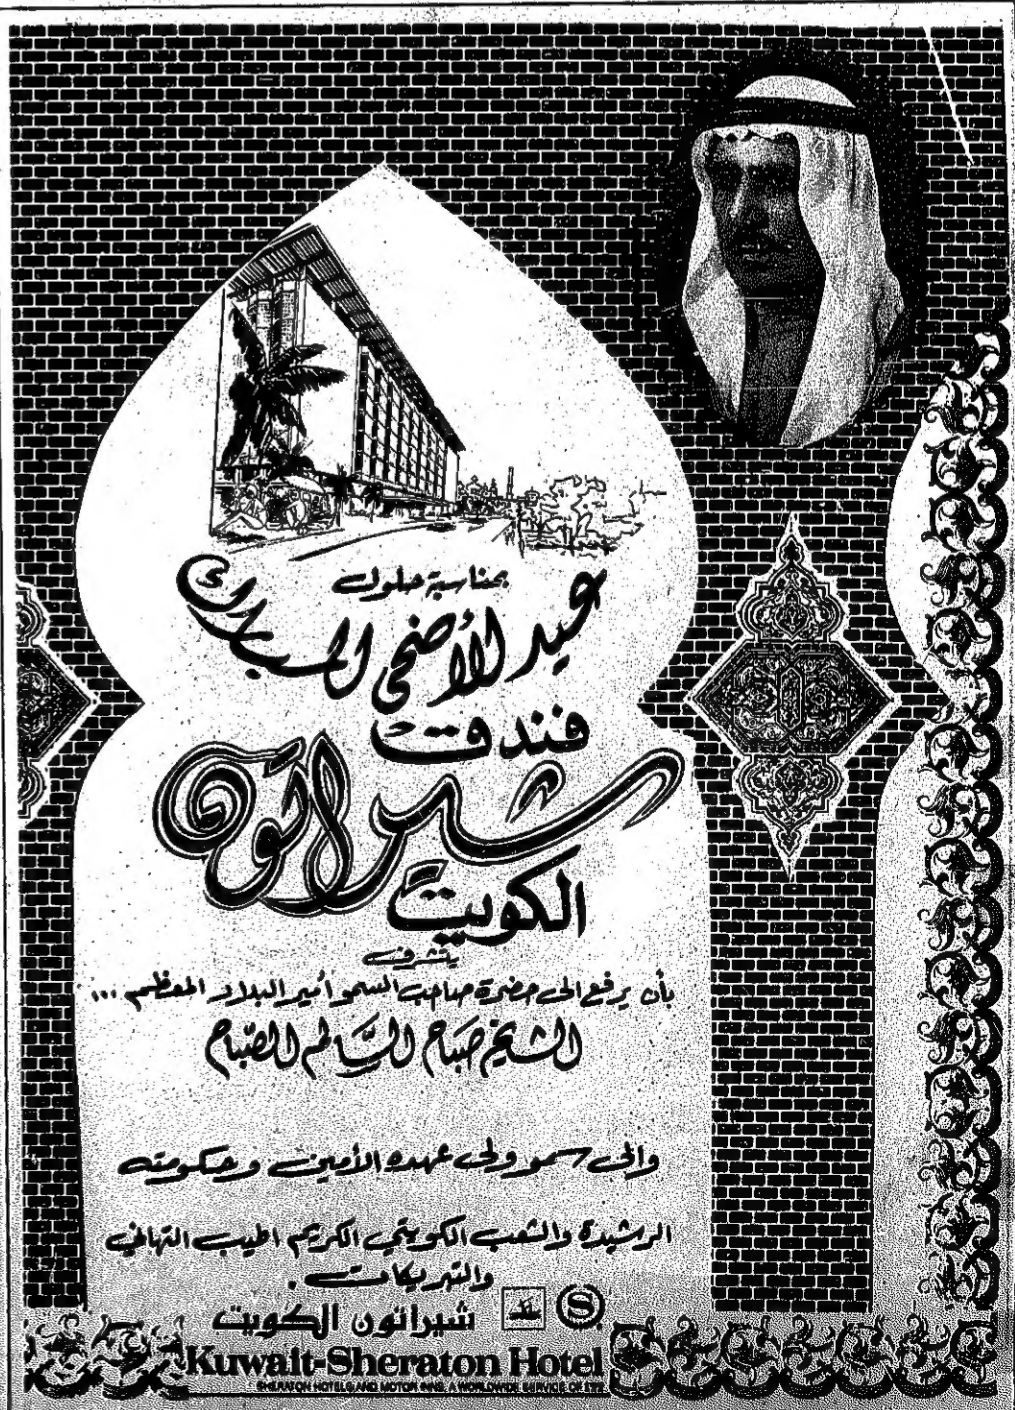 بمناسبة حلول
عيد الأضحى المبارك
فندق
شيراتون
الكويت
يتشرف
بأن يرفع الى حضرة صاحب السمو أمير البلاد المعظم ...
الشيخ صباح السالم الصباح
والى سمو ولى عهده الأمين وحكومته
الرشيدة والشعب الكويتي الكريم اطيب التهاني
والتبريكات .
شيراتون الكويت
S
Kuwait-Sheraton Hotel
SHERATON HOTELS AND MOTOR INNS, A WORLDWIDE SERVICE OF ITT